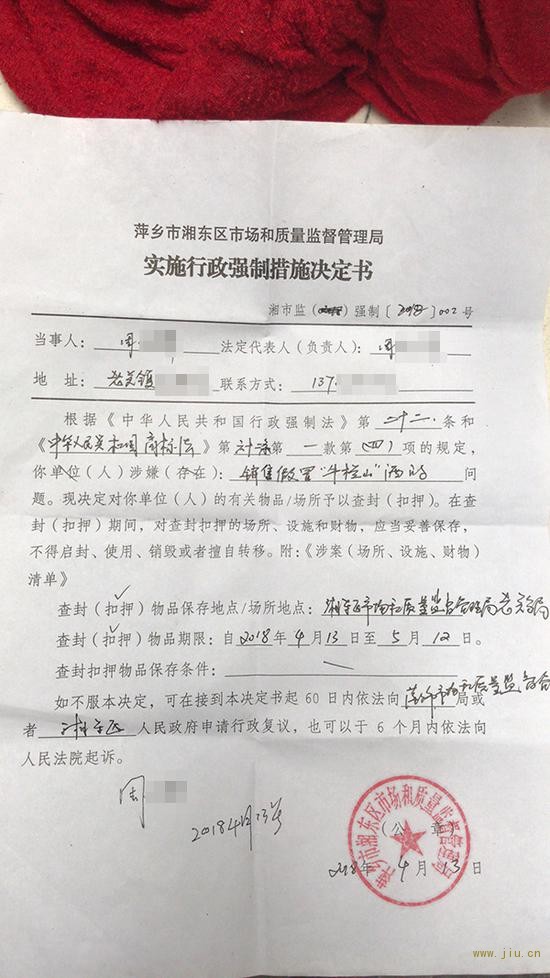 萍乡市湘东区市场和质量监督管理局
实施行政强制措施决定书
湘市监( )强制〔2018〕002号
当事人：周 法定代表人(负责人)：周
地 址：老关镇 联系方式：137
根据《中华人民共和国行政强制法》第二十二条和
《中华人民共和国商标法》第 第一款第(四)项的规定，
你单位(人)涉嫌(存在)：销售假冒“牛栏山”酒的 问
题。现决定对你单位(人)的有关物品/场所予以查封(扣押)。在查
封(扣押)期间，对查封扣押的场所、设施和财物，应当妥善保存，
不得启封、使用、销毁或者擅自转移。附：《涉案(场所、设施、财物)
清单》
查封(扣押)物品保存地点/场所地点：湘东区市场和质量监督管理局老关分局
查封(扣押)物品期限：自2018年4月13日至5月12日。
查封扣押物品保存条件：
如不服本决定，可在接到本决定书起60日内依法向萍乡市市场和质量监督局或
者湘东区人民政府申请行政复议，也可以于6个月内依法向
人民法院起诉。
周
2018年4月13号
萍乡市湘东区市场和质量监督管理局
(公 章)
2018年4月13日
www.jiu.cn